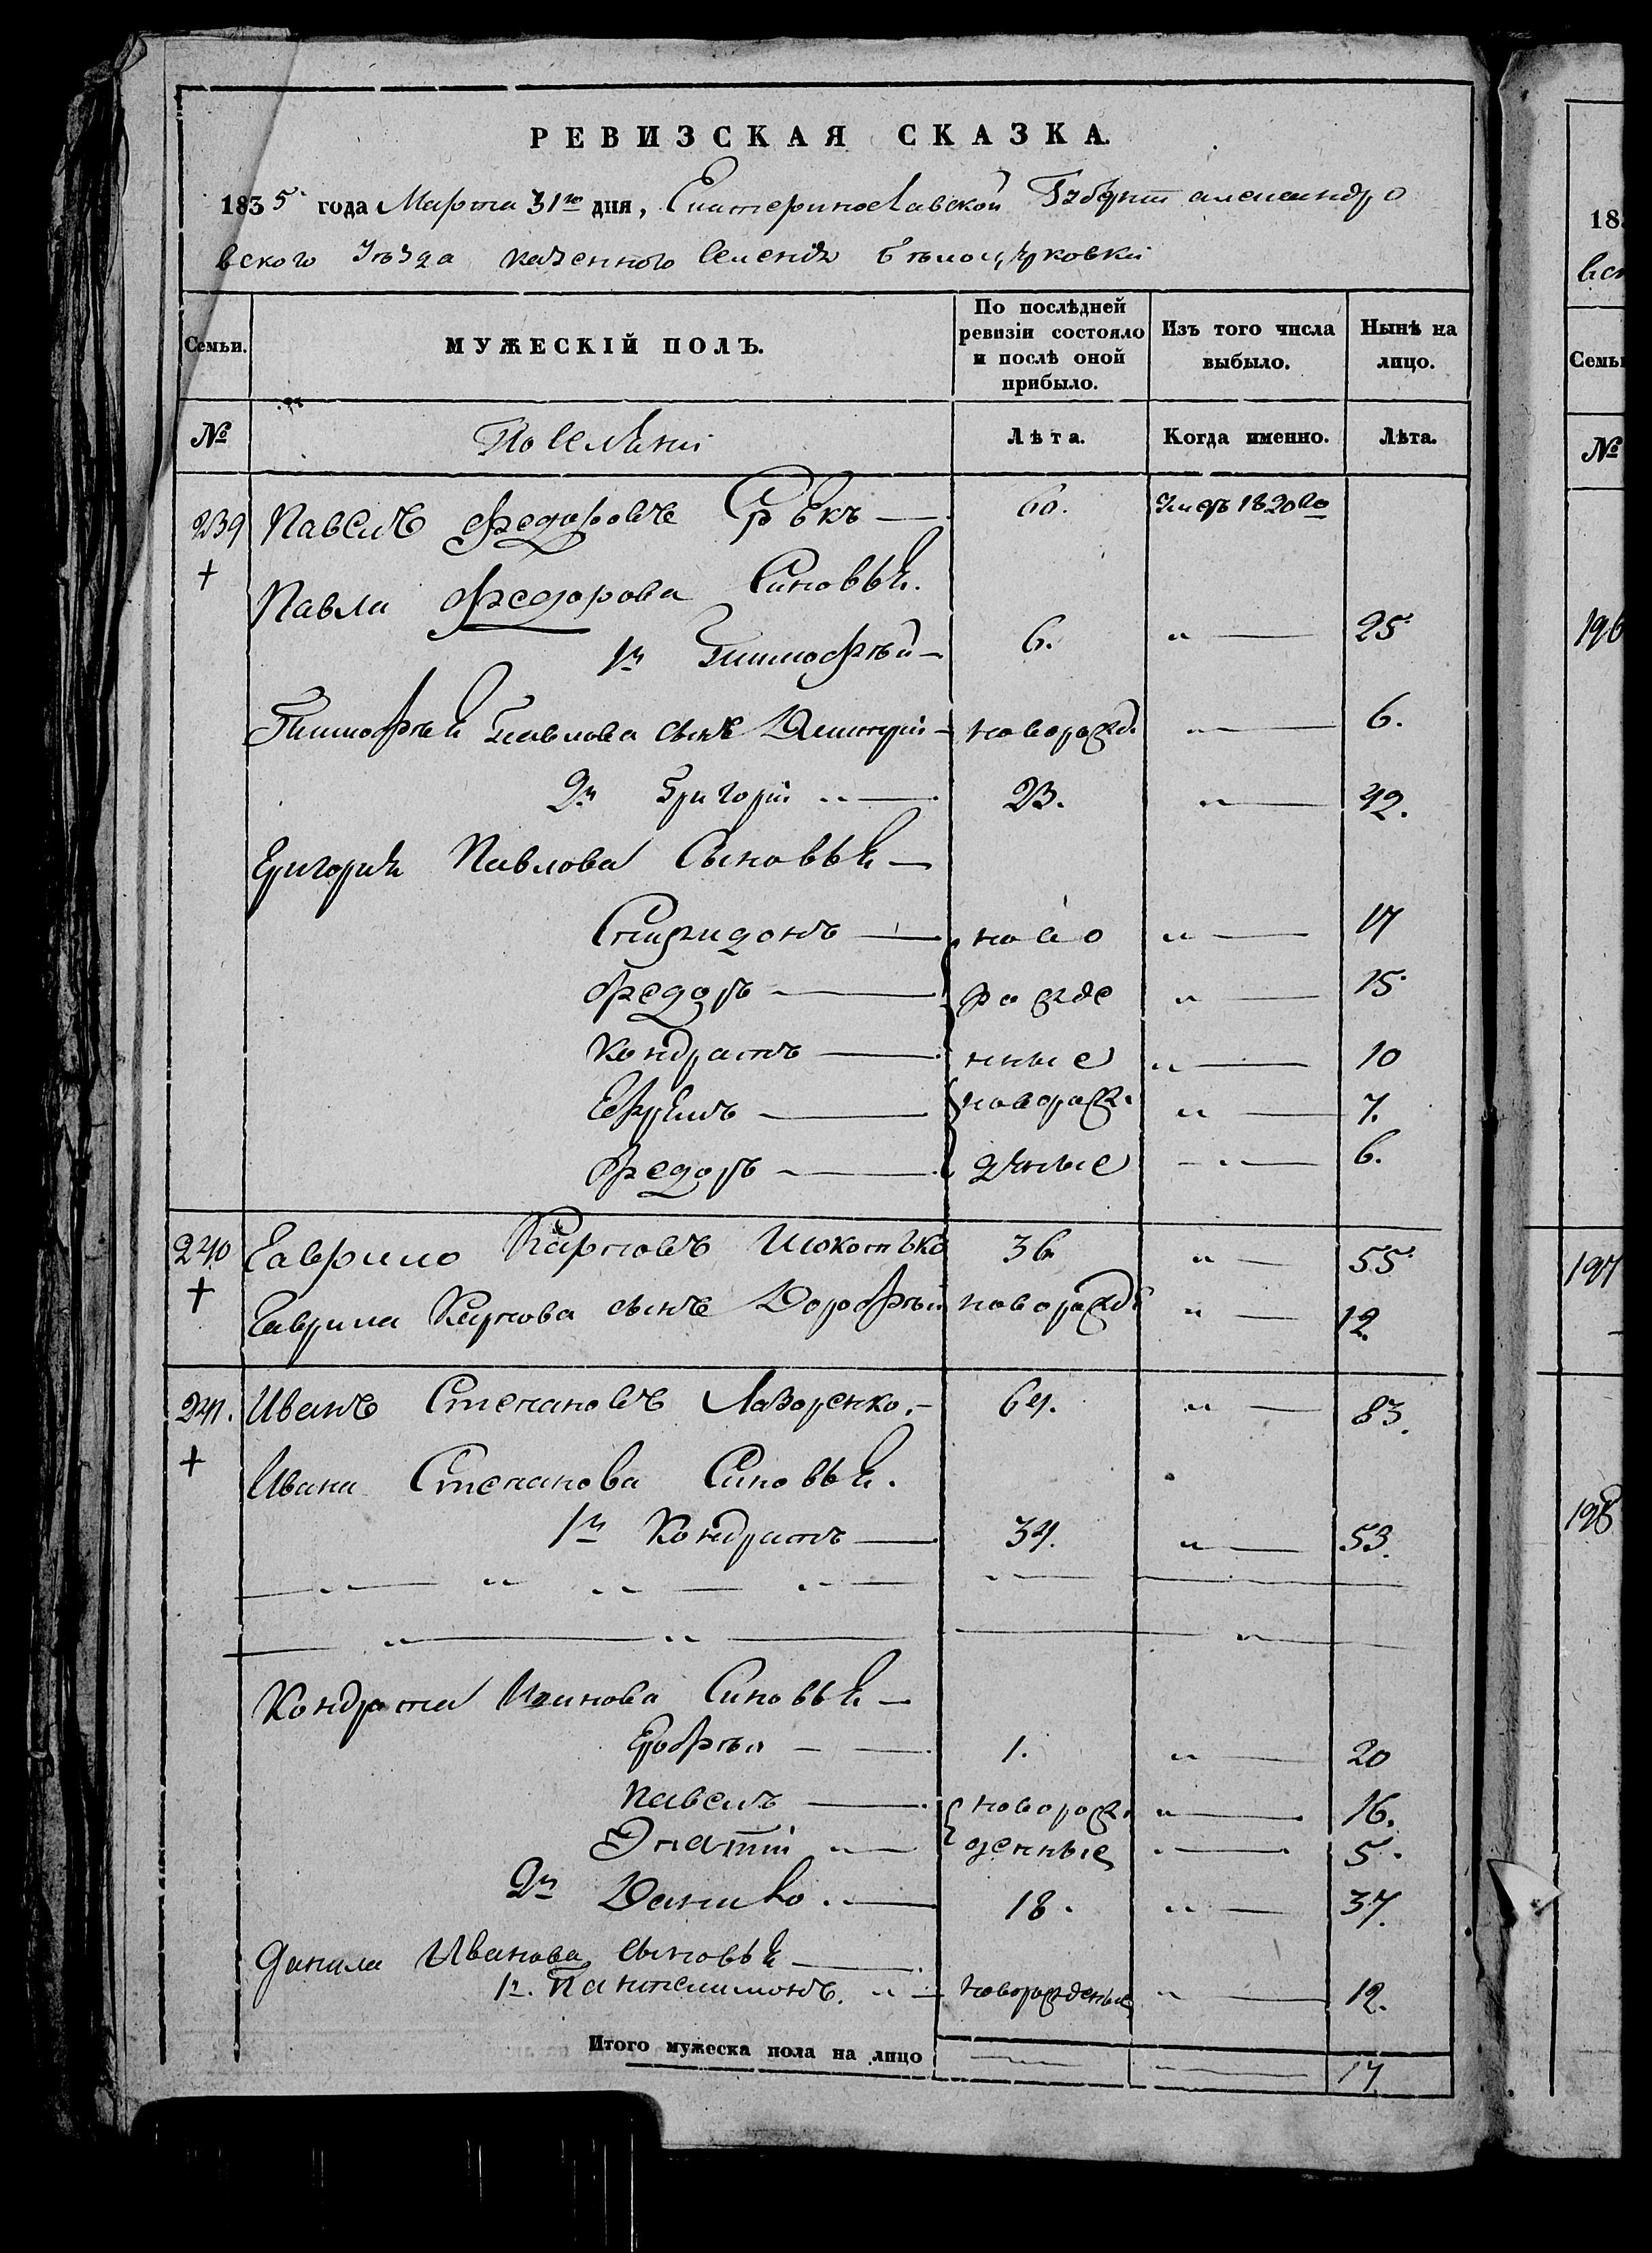 РЕВИЗСКАЯ СКАЗКА.
1835 года Марта 31го дня, Екатеринославской Губернии александро
вского Уезда казенного Селения белоцерковки
Семьи.
МУЖЕСКІЙ ПОЛЪ.
По послѣдней ревизіи состояло и послѣ оной прибыло.
Изъ того числа выбыло.
Нынѣ на лицо.
№
Поселяни
Лѣта.
Когда именно.
Лѣта.
239 Павелъ Федоровъ 60. Умеръ 1820го
Павла Федорова Синовьи.
1й Тимофѣй 6. " 25
Тимофѣя Павлова сынъ Дмитрій новорожд. " 6.
2й Григорій 23. " 42.
Григорія Павлова Сыновьи
Спиридонъ ново " 17
Федоръ рожде " 15
Кондратъ нные " 10
Ефремъ новорож. " 7.
Федоръ дѣные " 6.
240 Гаврило Карповъ 36 " 55
Гаврила Карпова сынъ Дорофѣй новорожд " 12.
241. Иванъ Степановъ Лазоренко. 64. " 83.
Ивана Степанова Синовьи.
1й Кондратъ 34. " 53.
Кондрата Иванова Синовьи
Ерофѣй 1. " 20
Павелъ новорож. " 16.
Игнатій денные " 5.
2й Данило 18. " 37.
Данила Иванова сыновьи
1й. Пантелимонъ. новорожденые " 12.
Итого мужеска пола на лицо 17
18
вск
Семьи
№
196
197
198